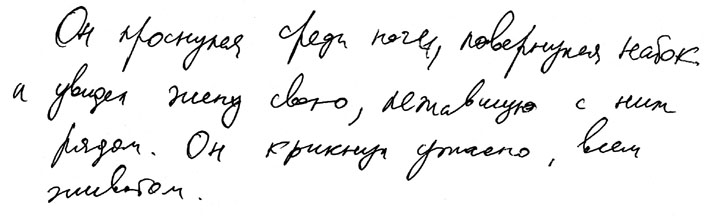 Он проснулся среди ночи, повернулся набок
и увидел жену свою, лежавшую с ним
рядом. Он крикнул ужасно, всем
животом.